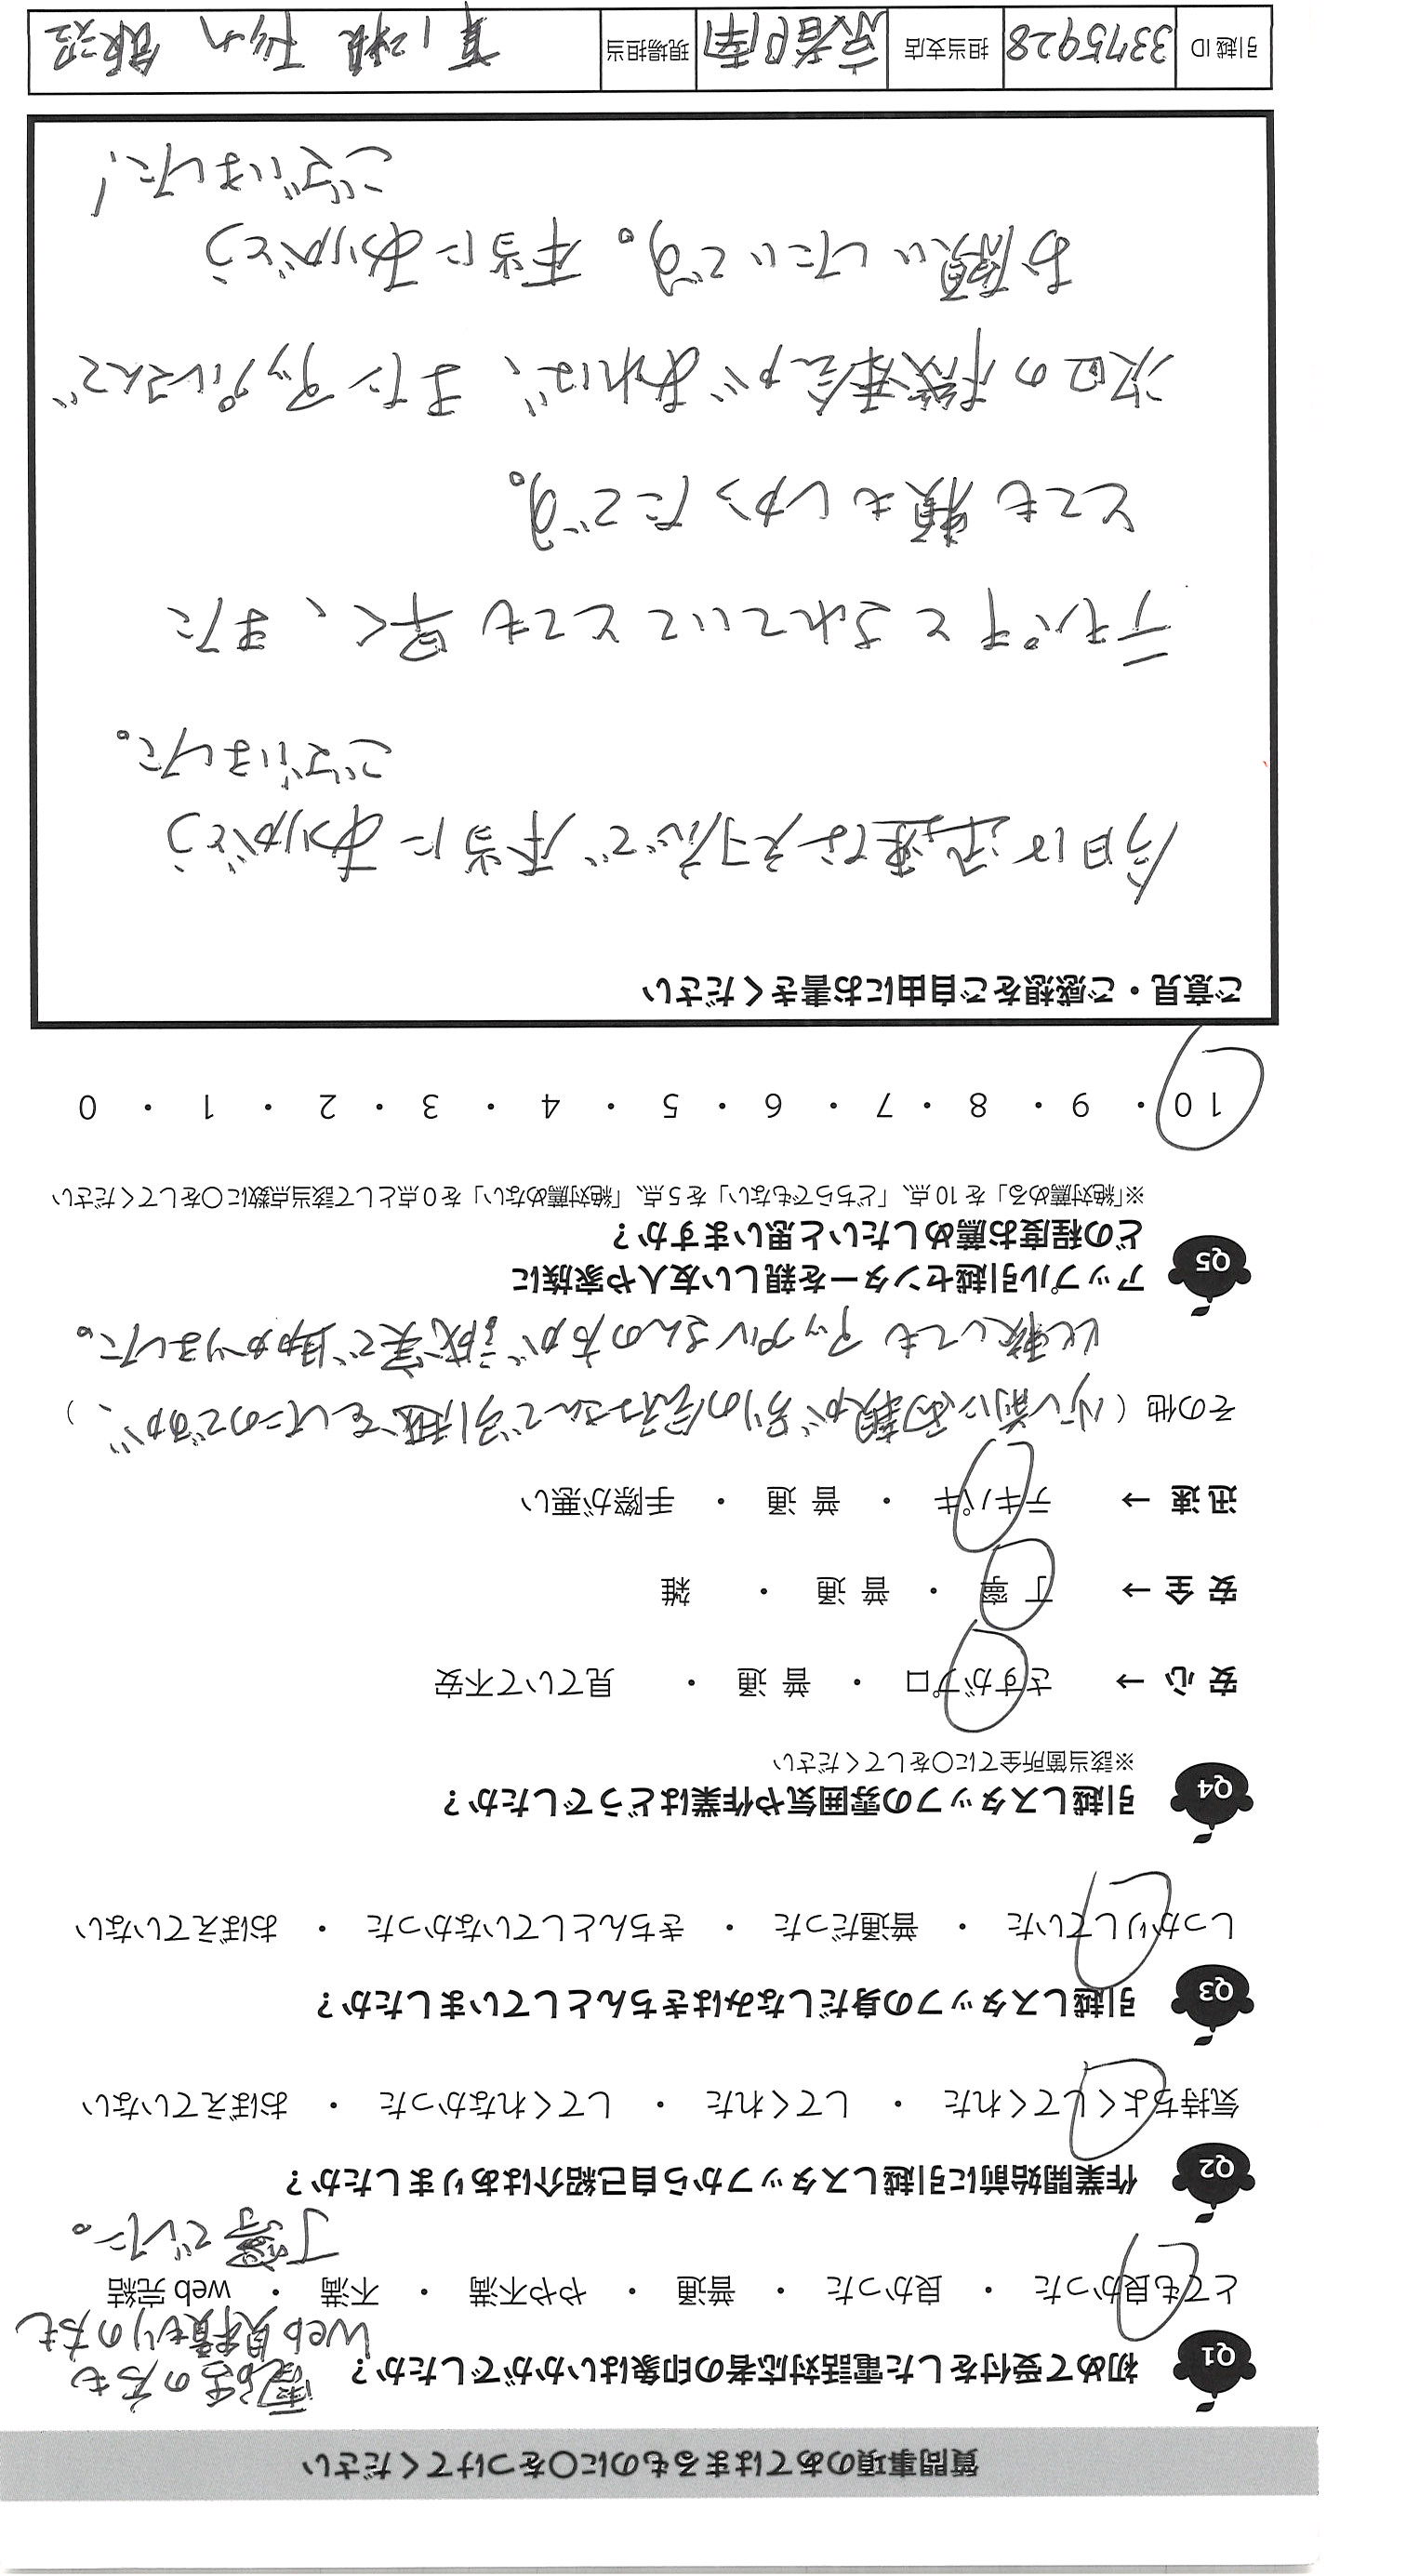 質問事項のあてはまるものに〇をつけてください
Q1 初めて受付をした電話対応者の印象はいかがでしたか？
電話の方も
Web見積もりの方も
とても良かった ・ 良かった ・ 普通 ・ やや不満 ・ 不満 ・ web 完結
丁寧でした。
Q2 作業開始前に引越しスタッフから自己紹介はありましたか？
気持ちよくしてくれた ・ してくれた ・ してくれなかった ・ おぼえていない
Q3 引越しスタッフの身だしなみはきちんとしていましたか？
しっかりしていた ・ 普通だった ・ きちんとしていなかった ・ おぼえていない
Q4 引越しスタッフの雰囲気や作業はどうでしたか？
※該当箇所全てに〇をしてください
安 心 → さすがプロ ・ 普 通 ・ 見ていて不安
安 全 → 丁 寧 ・ 普 通 ・ 雑
迅 速 → テキパキ ・ 普 通 ・ 手際が悪い
その他（ 少し前に両親が別の会社さんで引越をしたのですが、 ）
比較してもアップルさんの方が誠実で助かりました。
Q5 アップル引越センターを親しい友人や家族に
どの程度お薦めしたいと思いますか？
※「絶対薦める」を 10 点、「どちらでもない」を 5 点、「絶対薦めない」を 0 点として該当点数に〇をしてください
10 ・ 9 ・ 8 ・ 7 ・ 6 ・ 5 ・ 4 ・ 3 ・ 2 ・ 1 ・ 0
ご意見・ご感想をご自由にお書きください
今日は迅速な対応で本当にありがとう
ございました。
テキパキとされていてとても早く、また
とても頼もしかったです。
次回の機会があれば、またアップルさんで
お願いしたいです。本当にありがとう
ございました！
引越 ID 3375928 担当支店 京都南 現場担当